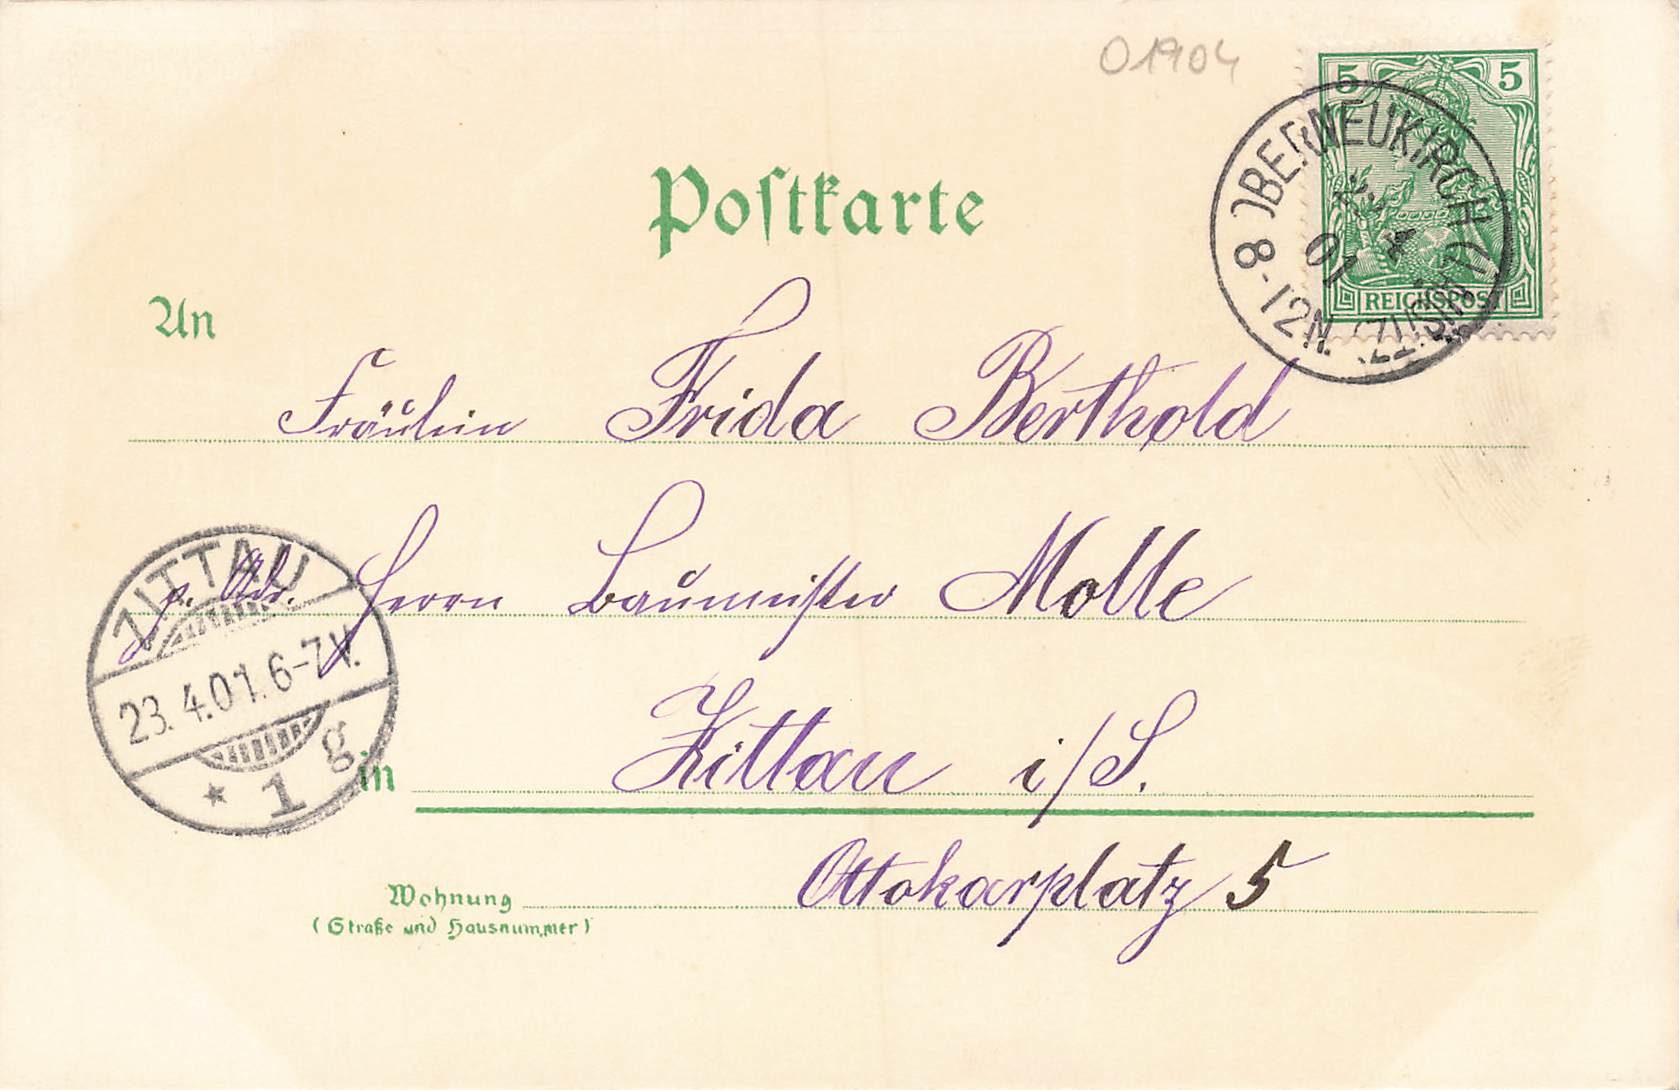 01904
5 5
REICHSPOST
OBERNEUKIRCH
22 4
01
8-12N.
Postkarte
An
Fräulein Frida Berthold
p. Adr. Herrn Baumeister Molle
ZITTAU
23.4.01.6-7V.
* 1 g
in Zittau i/S.
Wohnung Ottokarplatz 5
(Straße und Hausnummer)